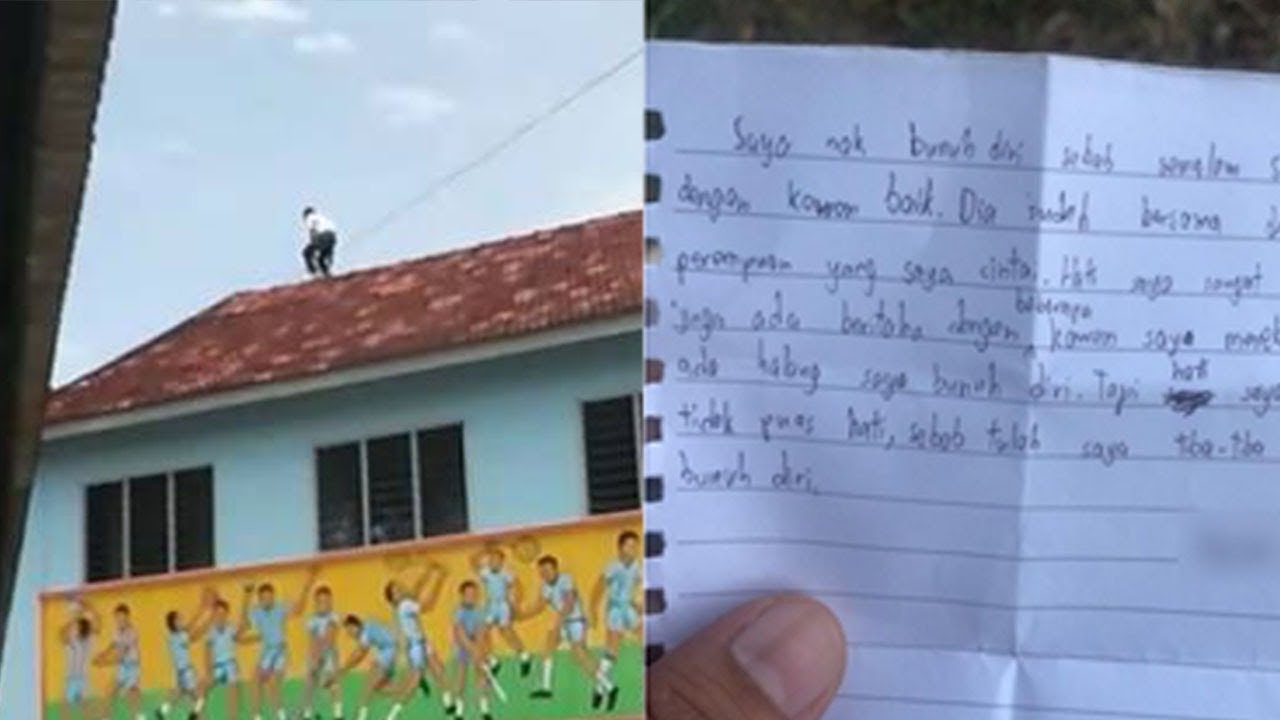 Saya nak bunuh diri sebab semalam
dengan kawan baik. Dia sudah bersama
perempuan yang saya cinta. Hati saya sangat
beberapa
juga ada beritahu dengan kawan saya
ada bunuh diri. Tapi hati saya
tidak puas hati, sebab tulah saya tiba-tiba
bunuh diri.